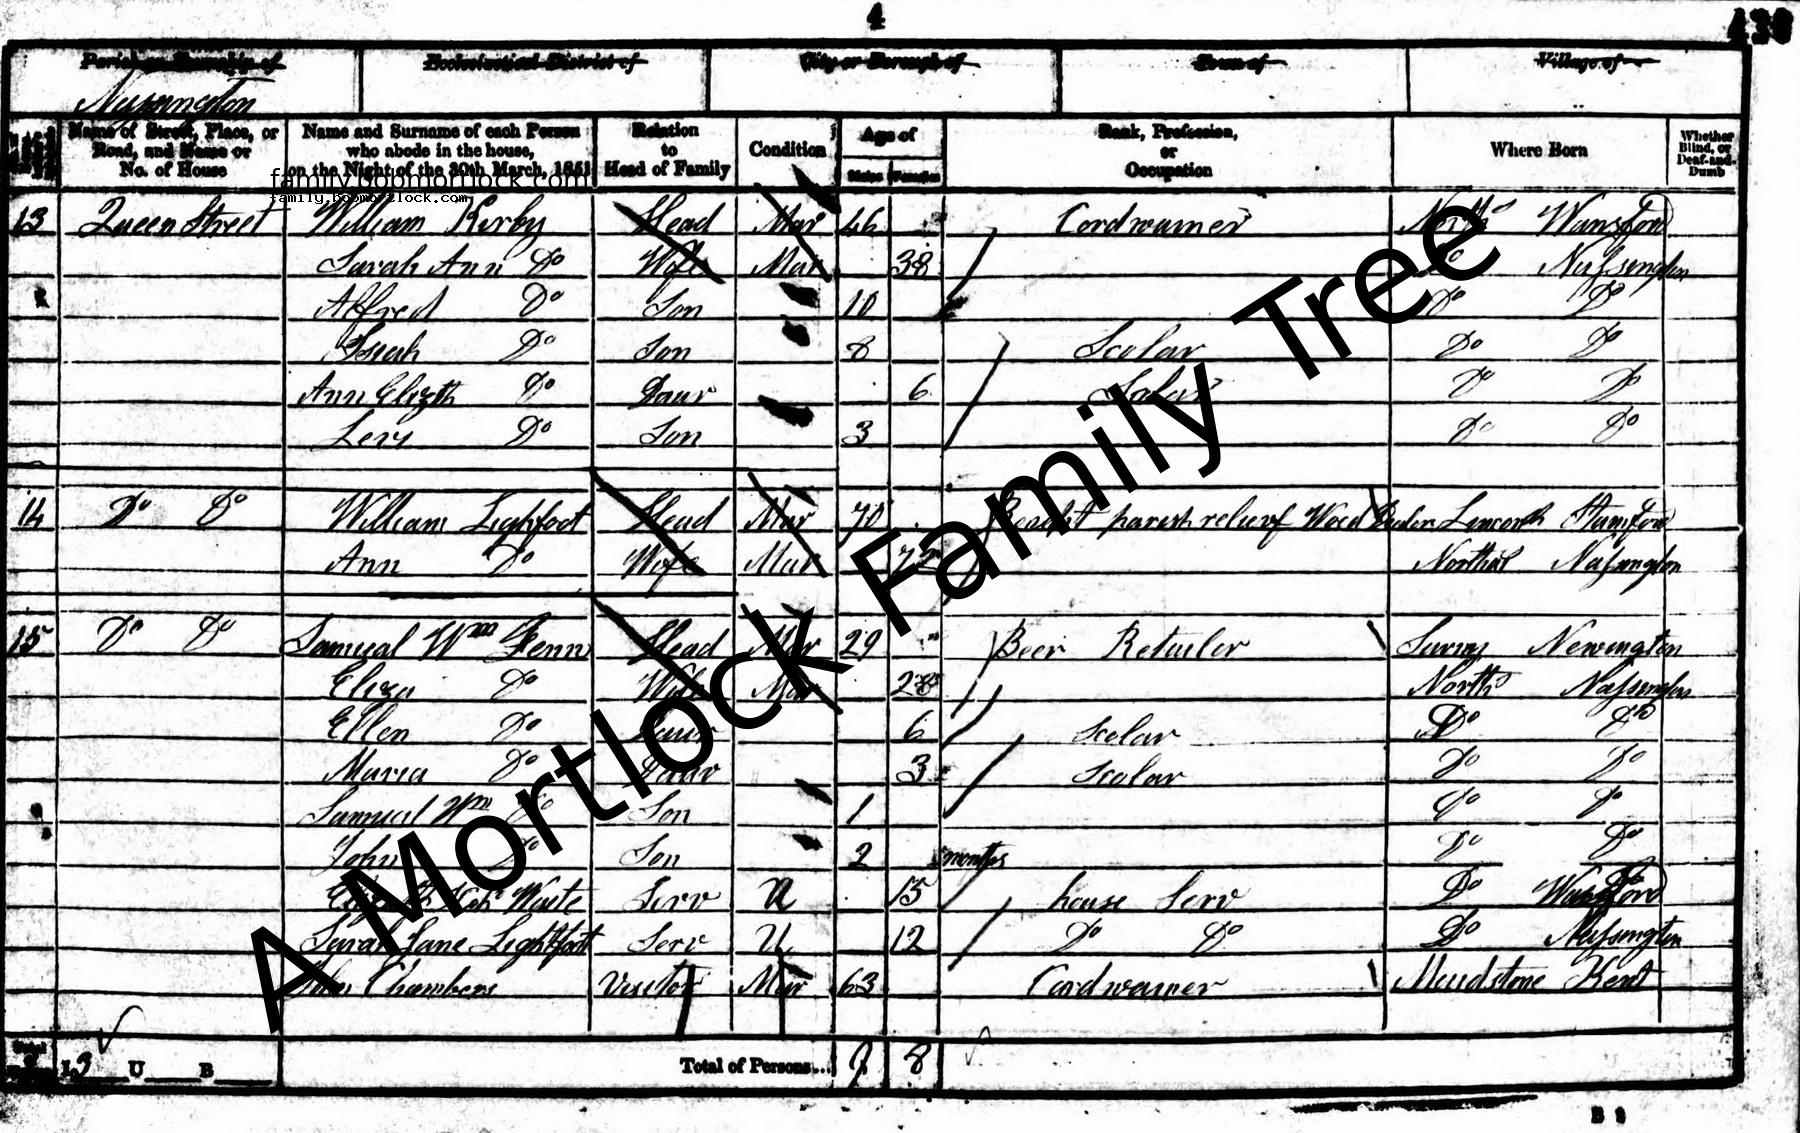 4
Parish or Township of
Ecclesiastical District of
City or Borough of
Town of
Village of
Nassington
Name of Street, Place, or Road, and Name or No. of House
Name and Surname of each Person who abode in the house, on the Night of the 30th March, 1851
Relation to Head of Family
Condition
Age of
Males Females
Rank, Profession, or Occupation
Where Born
Whether Blind, or Deaf-and-Dumb
family.bobmortlock.com
family.bobmortlock.com
13 Queen Street William Kirby Head Mar 46 Cordwainer North Wansford
Sarah Ann Do Wife Mar 38 Do Nassington
Alfred Do Son 10 Do Do
Do Son 8 Scolar Do Do
Ann Elizth Do Daur 6 Scolar Do Do
Levi Do Son 3 Do Do
14 Do Do William Lightfoot Head Mar parish relief Wood Stamford
Ann Do Wife Mar 72 Nassington
15 Do Do Samual Wm Fenn Head Mar 29 Beer Retailer Surry Newington
Eliza Do Wife Mar 28 North Nassington
Ellen Do Daur 6 Scolar Do Do
Maria Do Daur 3 Scolar Do Do
Samual Wm Do Son 1 Do Do
John Do Son 2 months Do Do
Waite Serv U 15 house Serv Do Wansford
Sarah Jane Lightfoot Serv U 12 Do Do Do Nassington
John Chambers Visitor Mar 63 Cordwainer Maidstone Kent
13 U B Total of Persons... 8
A Mortlock Family Tree